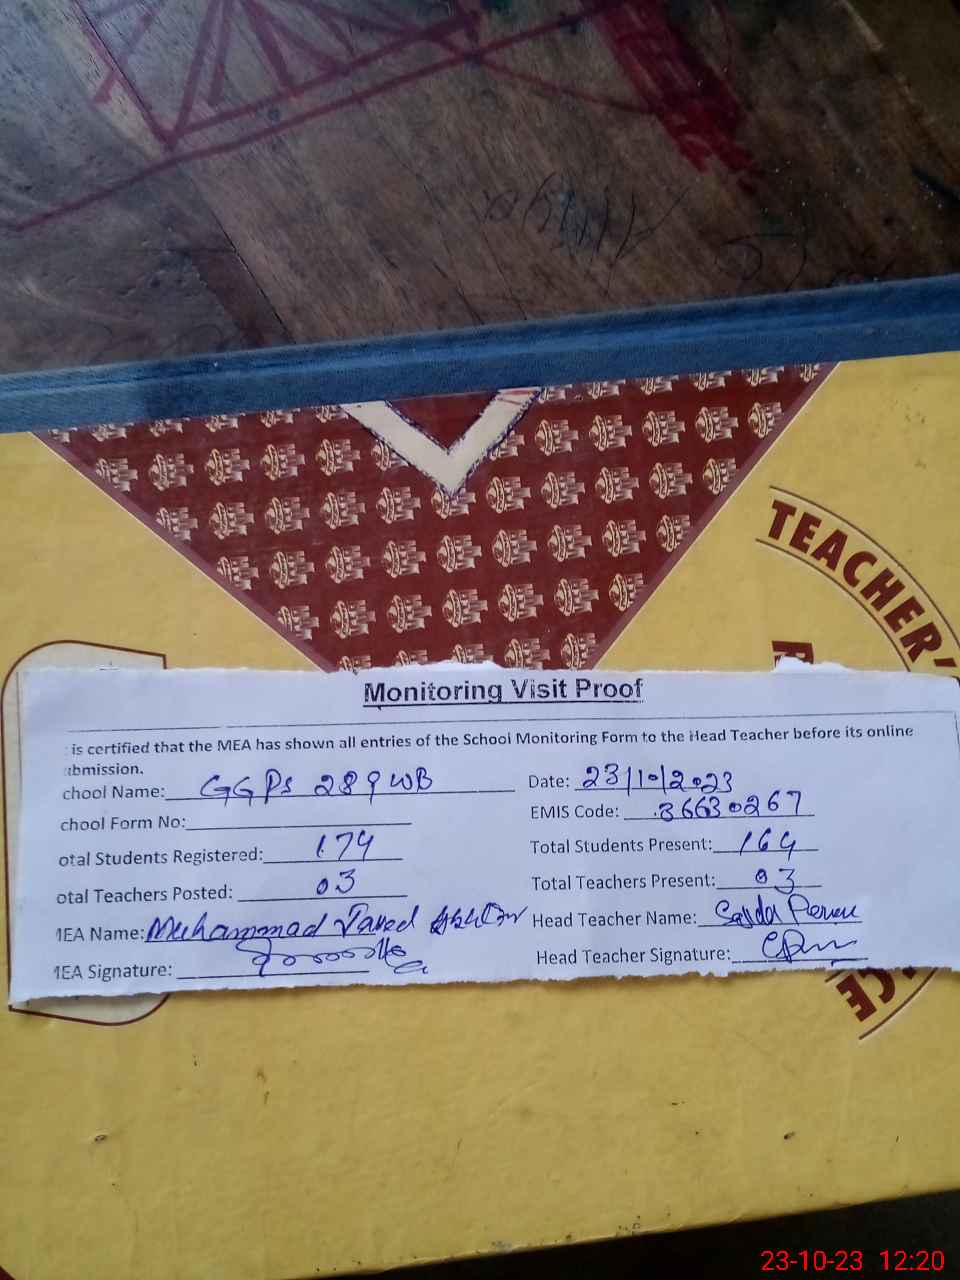 TEACHER'
Monitoring Visit Proof
is certified that the MEA has shown all entries of the School Monitoring Form to the Head Teacher before its online
ubmission.
chool Name: GGPS 289 WB Date: 23/10/2023
chool Form No: EMIS Code: 36630267
otal Students Registered: 174 Total Students Present: 164
otal Teachers Posted: 03 Total Teachers Present: 03
MEA Name: Muhammad Javed Head Teacher Name:
MEA Signature: Head Teacher Signature:
CE
23-10-23 12:20